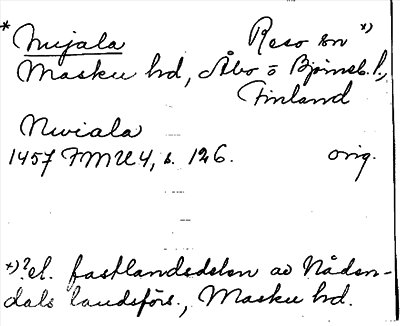 * Nujala Reso sn *)
Masku hd, Åbo o Björneb. l.,
Finland
Nwiala
1457 FMU 4, s. 126. orig.
*) ? el. fastlandsdelen av Nåden-
dals landsförs., Masku hd.